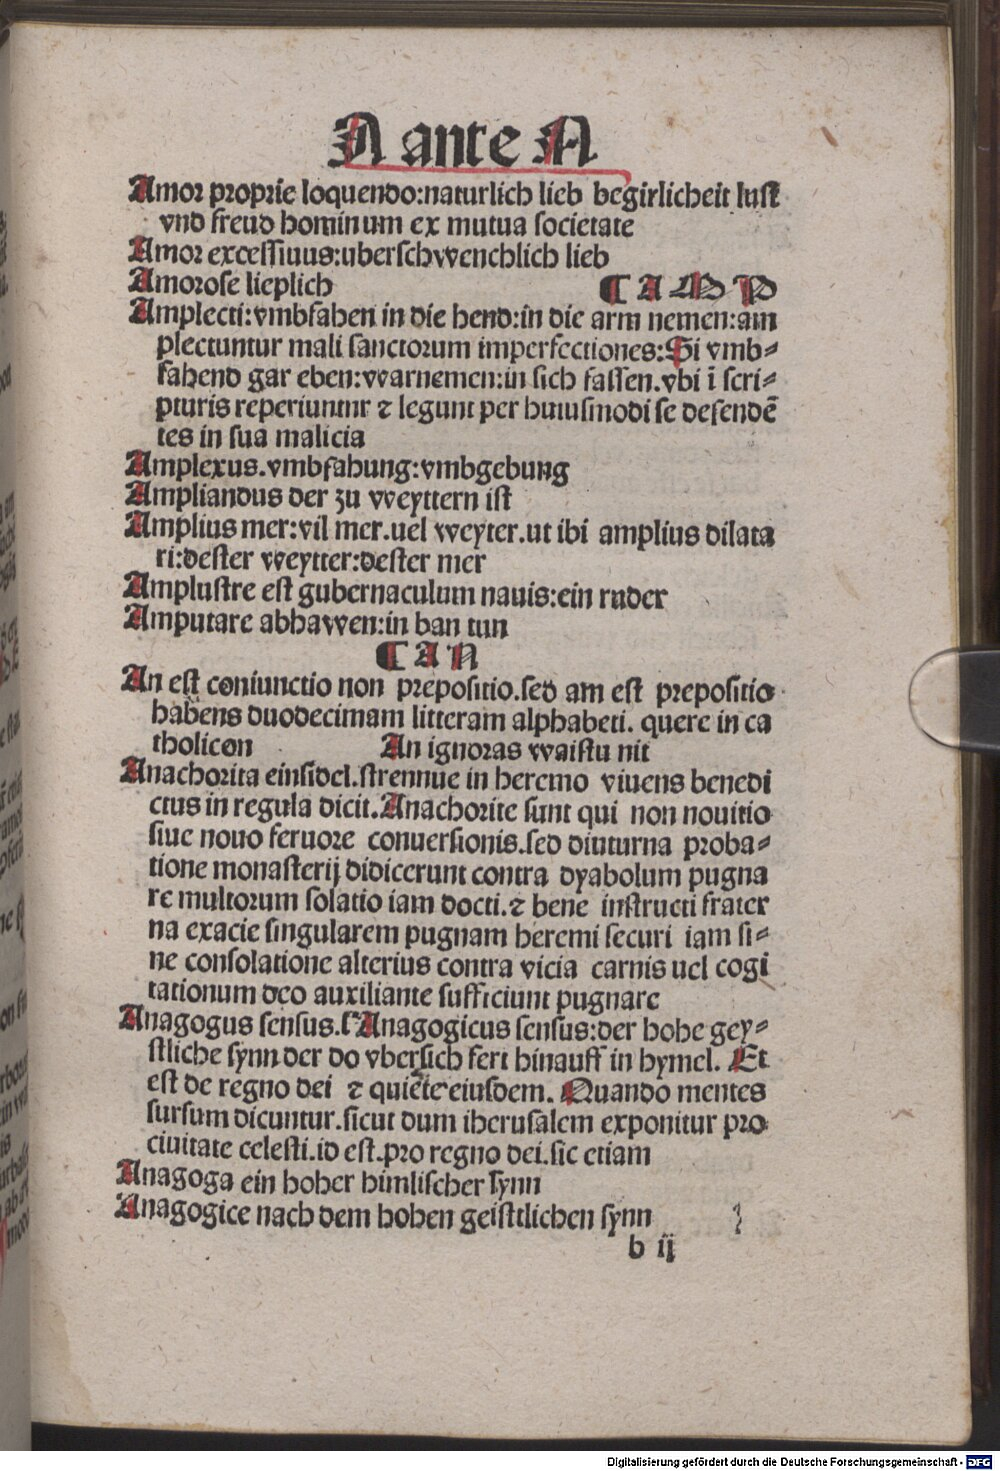 A ante A
Amor proprie loquendo:naturlich lieb begirlicheit lust
vnd freud hominum ex mutua societate
Amor excessiuus:uberschvvenchlich lieb
Amorose lieplich ¶ A M P
Amplecti:vmbfahen in die hend:in die arm nemen:am
plectuntur mali sanctorum imperfectiones:Si vmb-
fahend gar eben:vvarnemen:in sich fassen.vbi ī scri-
pturis reperiuntur ⁊ legunt per huiusmodi se defendē
tes in sua malicia
Amplexus.vmbfahung:vmbgebung
Ampliandus der zu vveyttern ist
Amplius mer:vil mer.uel vveyter.ut ibi amplius dilata
ri:dester vveytter:dester mer
Amplustre est gubernaculum nauis:ein ruder
Amputare abhavven:in ban tun
¶ A N
An est coniunctio non prepositio.sed am est prepositio
habens duodecimam litteram alphabeti. quere in ca
tholicon An ignoras vvaistu nit
Anachorita einsidel.strennue in heremo viuens benedi
ctus in regula dicit.Anachorite sunt qui non nouitio
siue nouo feruore conuersionis.sed diuturna proba-
tione monasterij didicerunt contra dyabolum pugna
re multorum solatio iam docti.⁊ bene instructi frater
na exacie singularem pugnam heremi securi iam si-
ne consolatione alterius contra vicia carnis uel cogi
tationum deo auxiliante sufficiunt pugnare
Anagogus sensus. Anagogicus sensus:der hohe gey-
stliche synn der do vbersich fert hinauff in hymel. Et
est de regno dei ⁊ quiete eiusdem. Quando mentes
sursum dicuntur.sicut dum iherusalem exponitur pro
ciuitate celesti.id est.pro regno dei.sic etiam
Anagoga ein hoher himlischer synn
Anagogice nach dem hohen geistlichen synn
b ij
Digitalisierung gefördert durch die Deutsche Forschungsgemeinschaft - DFG